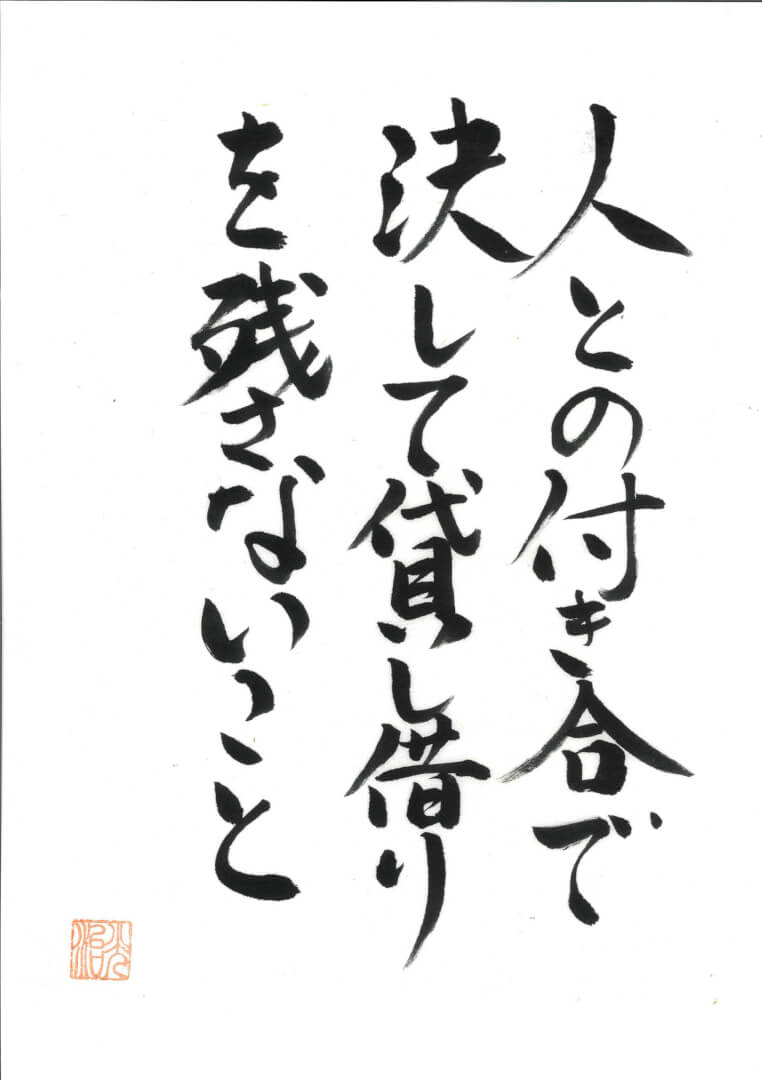 人との付き合で
決して貸し借り
を残さないこと